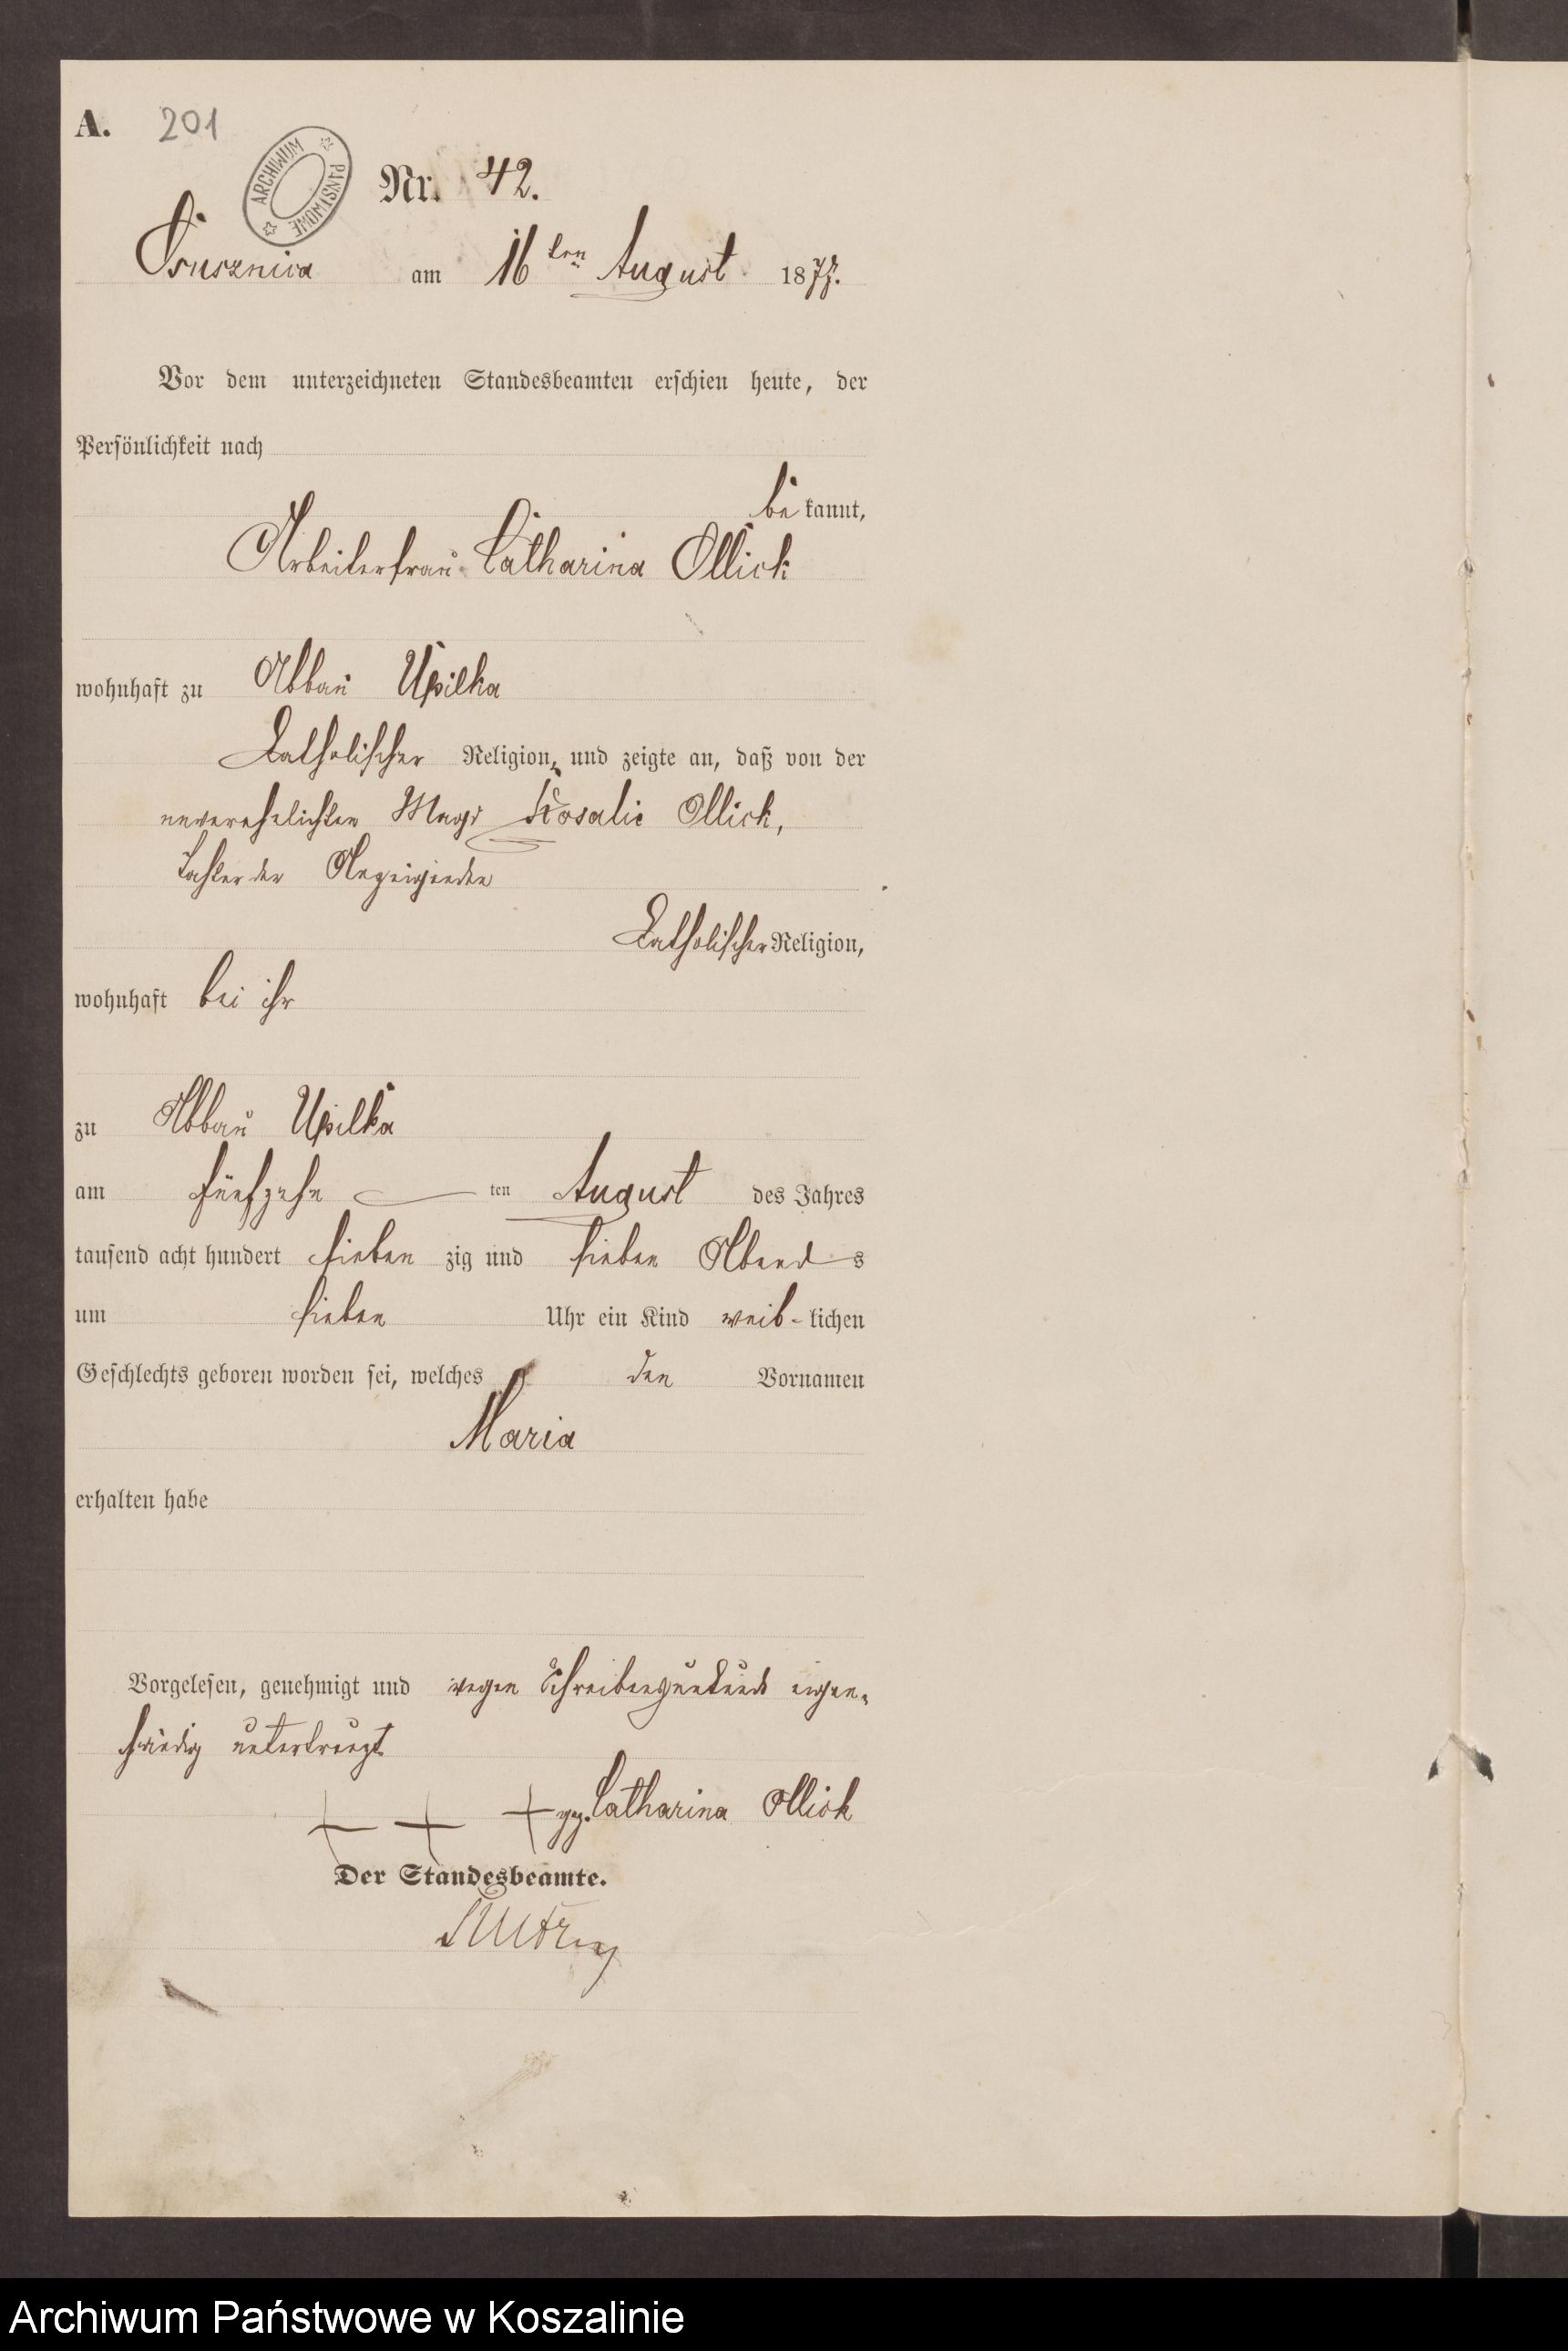 A. 201
ARCHIWUM PAŃSTWOWE
Nr. 42.
am 16ten August 1877.
Vor dem unterzeichneten Standesbeamten erschien heute, der
Persönlichkeit nach
be kannt,
Arbeiterfrau Catharina Ollick
wohnhaft zu Abbau Upilka
Katholischer Religion, und zeigte an, daß von der
unverehelichten Magd Rosalie Ollick,
Tochter der Anzeigenden
Katholischer Religion,
wohnhaft bei ihr
zu Abbau Upilka
am fünfzehn ten August des Jahres
tausend acht hundert sieben zig und sieben Abend s
um sieben Uhr ein Kind weib- lichen
Geschlechts geboren worden sei, welches den Vornamen
Maria
erhalten habe
Vorgelesen, genehmigt und wegen Schreibensunkunde eigen-
händig unterkreuzt
+ + + gz. Catharina Ollick
Der Standesbeamte.
Archiwum Państwowe w Koszalinie